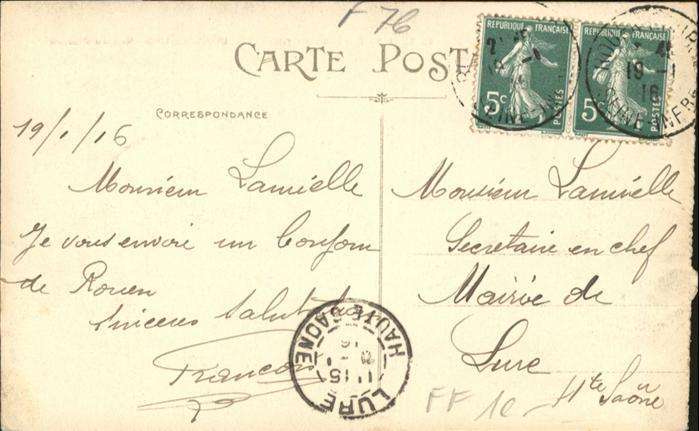 F 76
CARTE POSTALE
RÉPUBLIQUE FRANÇAISE
5c
POSTES
RÉPUBLIQUE FRANÇAISE
5c
POSTES
19 - 1
16
CORRESPONDANCE
19/1/16
Monsieur Lamielle
Je vous envoie un bonjour
de Rouen
Sinceres Salutations
Francon
Monsieur Lamielle
Secretaire en chef
Mairie de
Lure
Hte Saône
LURE
HAUTE SAONE
FF 10